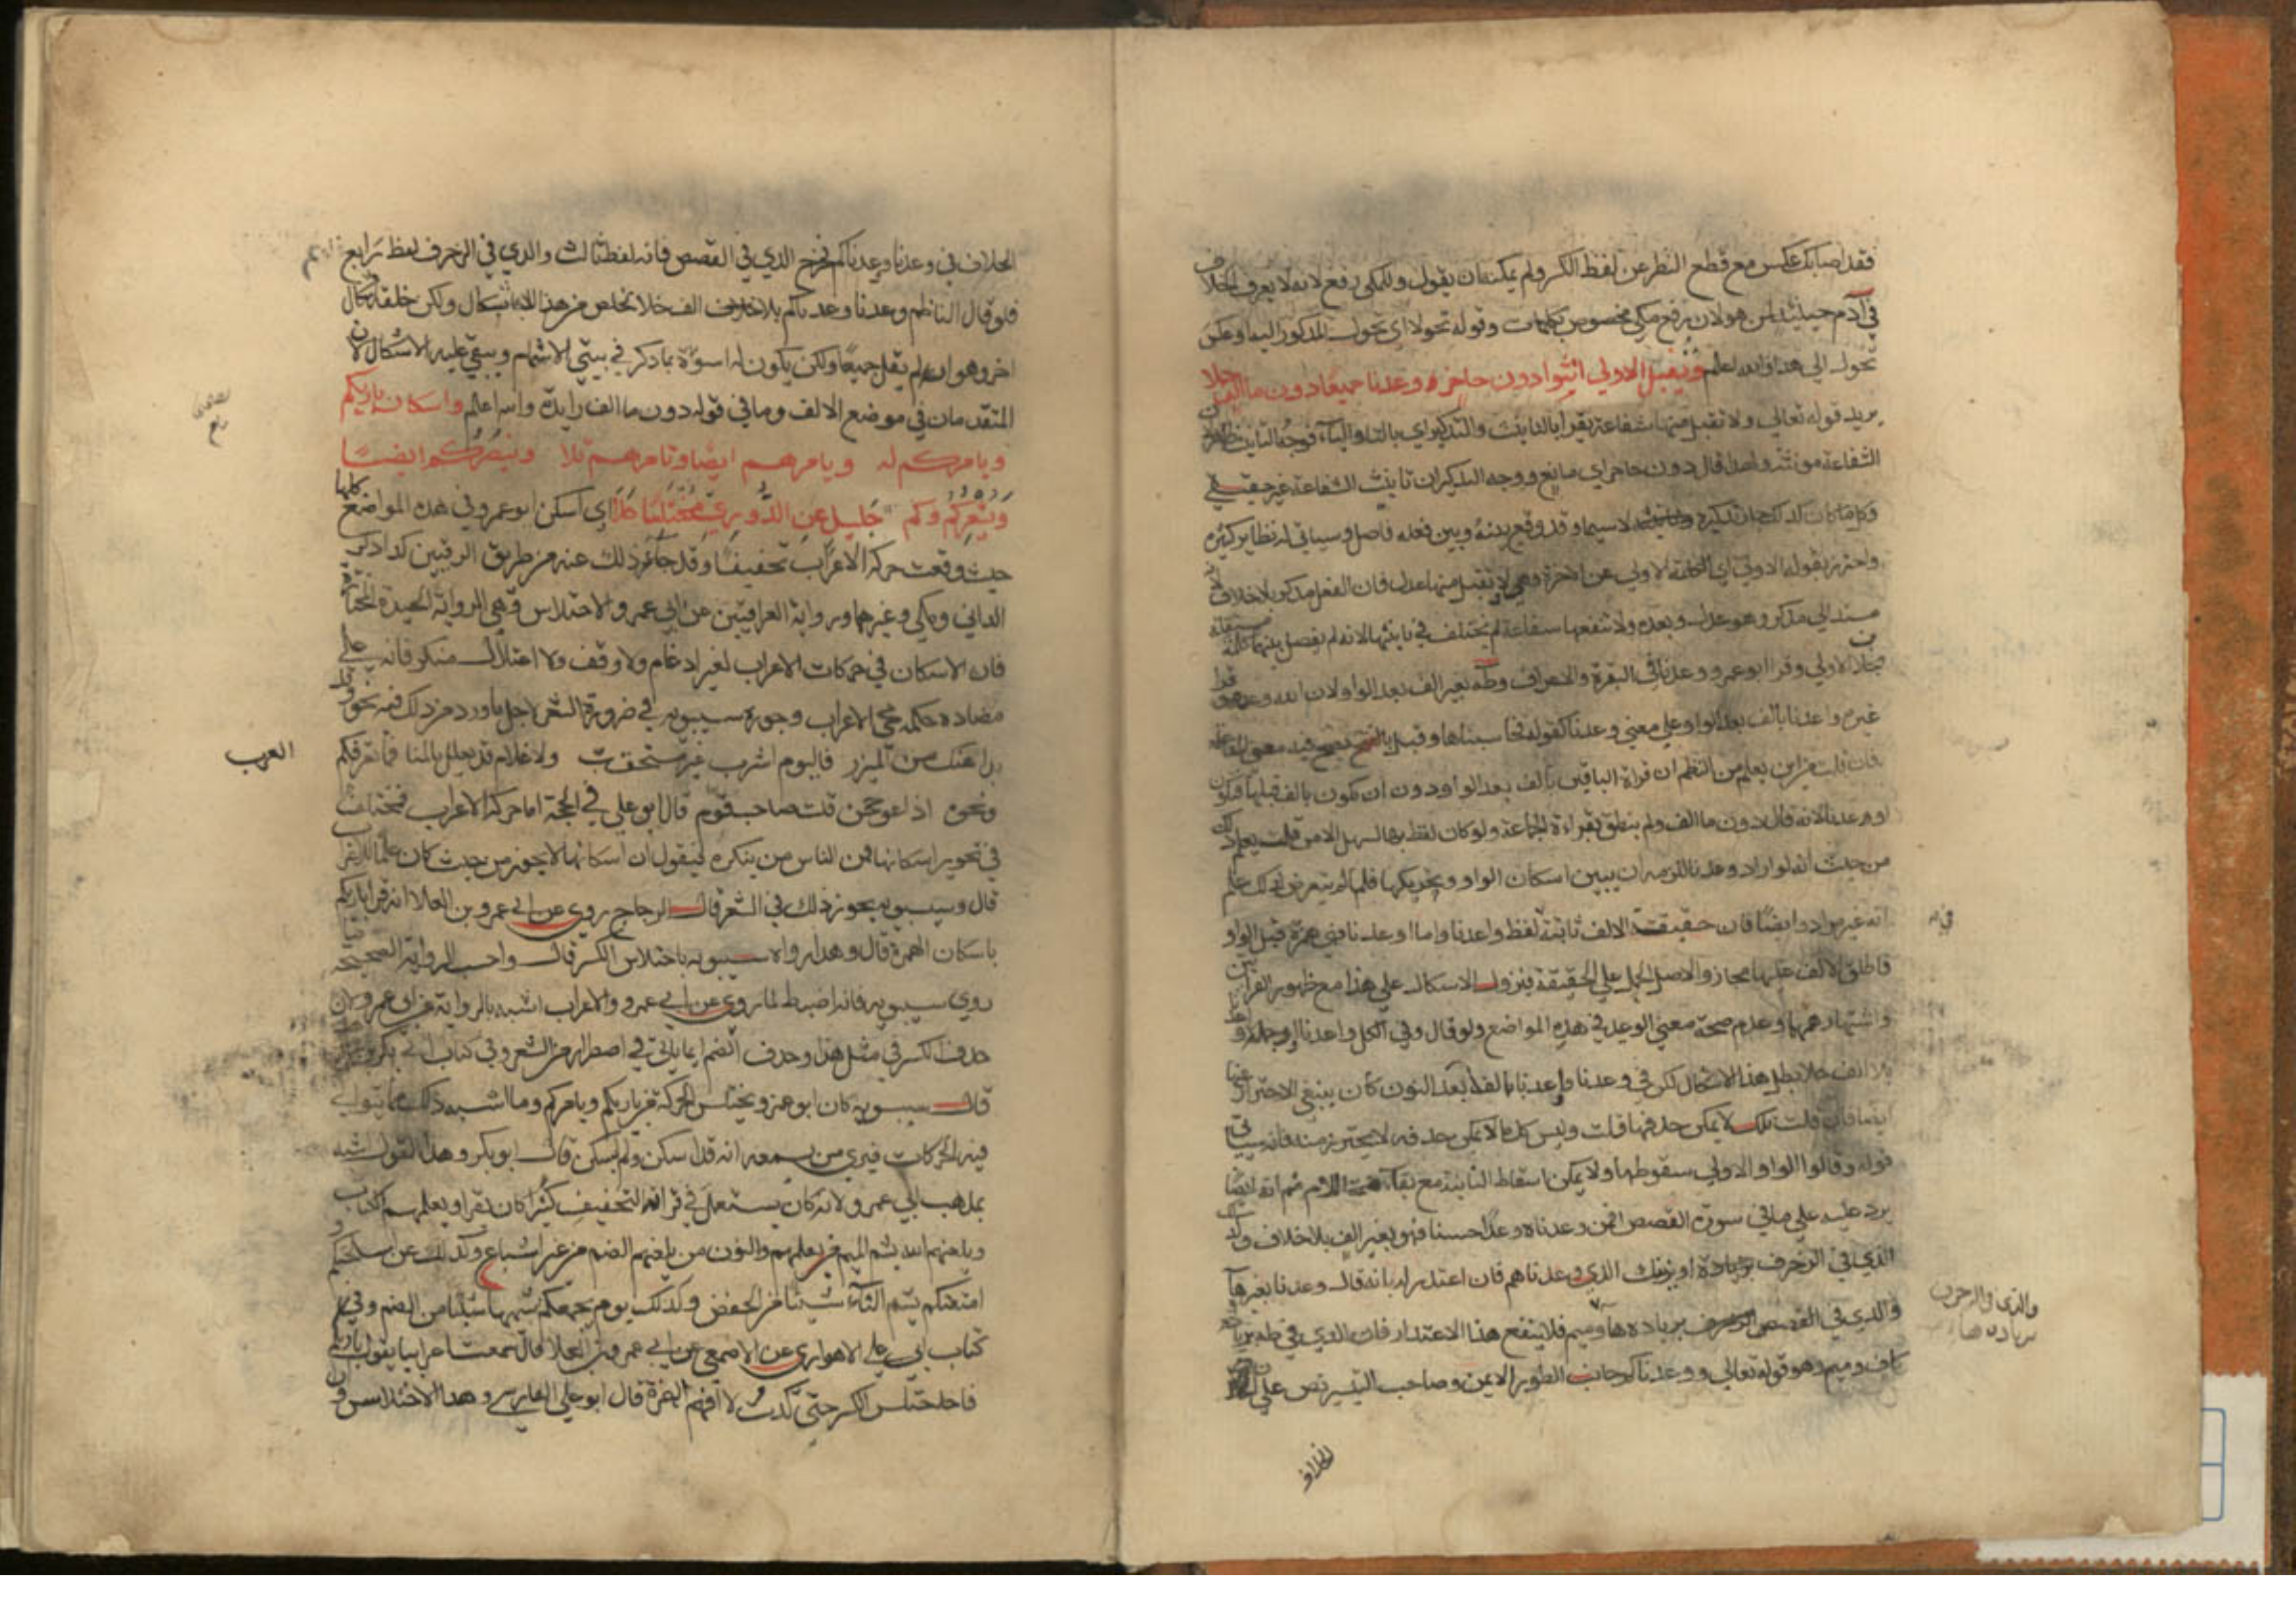 فقد أصابك عكس مع قطع النظر عن لفظ الكسر ولم يمكنه ان يقول وللمكي رفع لانه لا يعرف الخلاف
في آدم حينئذ لمن هو لان رفع مكي مخصوص بكلمات وقوله تحولا اي تحول المذكور اليها وعكس
تحول الي هذا والله اعلم ويقبل الاولي انثوا دون حاجز وعدنا جميعا دون ما الف حلا
يريد قوله تعالي ولا تقبل منها شفاعة يقرا بالتانيث والتذكير اي بالتاء والياء فوجه التانيث ظاهر لان
الشفاعة مونثة ولهذا قال دون حاجز اي مانع ووجه التذكير ان تانيث الشفاعة غير حقيقي
وكل ما كان كذلك جاز تذكيره لا سيما وقد وقع بينه وبين فعله فاصل وسياتي له نظاير كثيرة
واحترز بقوله الاولي اي الكلمة الاولي عن الاخرة وهي لا تقبل منها عدل فان الفعل مذكر بلا خلاف لانه
مسند الي مذكر وهو عدل وبعده ولا تنفعها شفاعة لم يختلف في تانيثها لانه لم يفصل بينهما كلمة مستقلة
بخلاف الاولي وقرا ابو عمرو وعدنا في البقرة والاعراف وطه بغير الف بعد الواو لان الله وعده وقرا
غيره واعدنا بالف بعد الواو علي معني وعدنا كقوله فحاسبناها وقيل يصح فيه معني المفاعلة
فان قلت من اين يعلم من النظم ان قراة الباقين بالف بعد الواو دون ان تكون بالف قبلها فتكون
اوعدنا لانه قال دون ما الف ولم ينطق بقراءة الجماعة ولو كان لفظ بها لسهل الامر قلت يعلم ذلك
من حيث انه لو اراد اوعدنا للزمه ان يبين اسكان الواو وتحريكها فلما لم يتعرض لذلك علم
انه غير مراد وايضا فان حقيقة الالف ثابتة لفظ واعدنا واما اوعدنا فهي همزة قبل الواو
فاطلق الالف عليها مجاز والاصل الحمل علي الحقيقة فيزول الاشكال علي هذا مع ظهور القراءتين
واشتهارهما وعدم صحة معني الوعيد في هذه المواضع ولو قال وفي الكل واعدنا
بلا الف حلا بطل هذا الاشكال لكن في وعدنا واعدنا الف بعد النون كان ينبغي الاحتراز عنها
ايضا فان قلت تلك لا يمكن حذفها قلت وليس كل ما لا يمكن حذفه لا يحترز منه فانه سياتي
قوله وقالوا الواو الاولي سقوطها ولا يمكن اسقاط الثانية مع بقاء ضمة اللام ثم انه ايضا
يرد عليه علي ما في سورة القصص افمن وعدناه وعدا حسنا فهو بغير الف بلا خلاف وكذلك
الذي في الزخرف بزيادة او نرينك الذي وعدناهم فان اعتذر له بانه قال وعدنا بغير هاء
والذي في القصص بزيادة ها وميم فلا ينفع هذا الاعتذار فان الذي في طه بزيادة
كاف وميم وهو قوله تعالي ووعدناكم جانب الطور الايمن وصاحب التيسير نص علي ان
والذي في الزخرف
بزيادة هاء
الخلاف
الخلاف في وعدنا ووعدناكم فخرج الذي في القصص فانه لفظ ثالث والذي في الزخرف لفظ رابع
فلو قال الناظم وعدنا وعدناكم بلا الف حلا تخلص من هذا الاشكال ولكن خلفه اشكال
اخر وهو انه لم يقل جميعا ولكن يكون له اسوة بما ذكر في بيتي الاشمام ويبقي عليه الاشكالان
المتقدمان في موضع الالف وما في قوله دون ما الف زايدة والله اعلم واسكان بارئكم
ويامركم له ويامرهم ايضا وتامرهم تلا وينصركم ايضا
ويشعركم وكم جليل عن الدوري مختلسا جلا اي اسكن ابو عمرو في هذه المواضع كلها
حيث وقعت حركة الاعراب تخفيفا وقد جاء ذلك عنه من طريق الرقيين كذا ذكر
الداني ومكي وغيرهما ورواية العراقيين عن ابي عمرو الاختلاس وهي الرواية الجيدة المختارة
فان الاسكان في حركات الاعراب لغير ادغام ولا وقف ولا اعتلال منكر فانه علي
مضادة حكمة مجي الاعراب وجوزه سيبويه في ضرورة الشعر لاجل ما ورد من ذلك فيه نحو وقد
بدا هنك من الميزر فاليوم اشرب غير مستحقب ولا غلام قد يعلل بالمنا فما تعرفكم
العرب
ونحوه اذا اعوججن قلت صاحب قوم قال ابو علي في الحجة اما حركة الاعراب فمختلف
في تجويز اسكانها فمن الناس من ينكره فيقول ان اسكانها لا يجوز من حيث كان علما للاعراب
قال وسيبويه يجوز ذلك في الشعر قال الزجاج روي عن ابي عمرو بن العلا انه قرا بارئكم
باسكان الهمزة قال وهذا رواه سيبويه باختلاس الكسر قال واحسب الرواية الصحيحة
روي سيبويه فانه اضبط لما روي عن ابي عمرو والاعراب اشبه بالرواية عن ابي عمرو لان
حذف الكسر في مثل هذا وحذف الضم انما ياتي في اضطرار من الشعر وفي كتاب ابي بكر
قال سيبويه كان ابو عمرو يختلس الحركة من بارئكم ويامركم وما اشبه ذلك مما تتوالي
فيه الحركات فيري من يسمعه انه قد اسكن ولم يسكن قال ابو بكر وهذا القول اشبه
بمذهب ابي عمرو لانه كان يستعمل في قراته التخفيف كثيرا كان يقرا ويعلمهم الكتاب
ويلعنهم الله يشم الميم من يعلمهم والنون من يلعنهم الضم من غير اشباع وكذلك عن اسلحتكم
امتعتكم يشم التاء شيئا من الخفض وكذلك يوم يجمعكم يشمها شيئا من الضم وفي
كتاب ابي علي الاهوازي عن الاصمعي عن ابي عمرو بن العلا قال سمعت اعرابيا يقول بارئكم
فاختلس الكسر حتي كدت لا افهم الهمزة قال ابو علي الفارسي وهذا الاختلاس وان